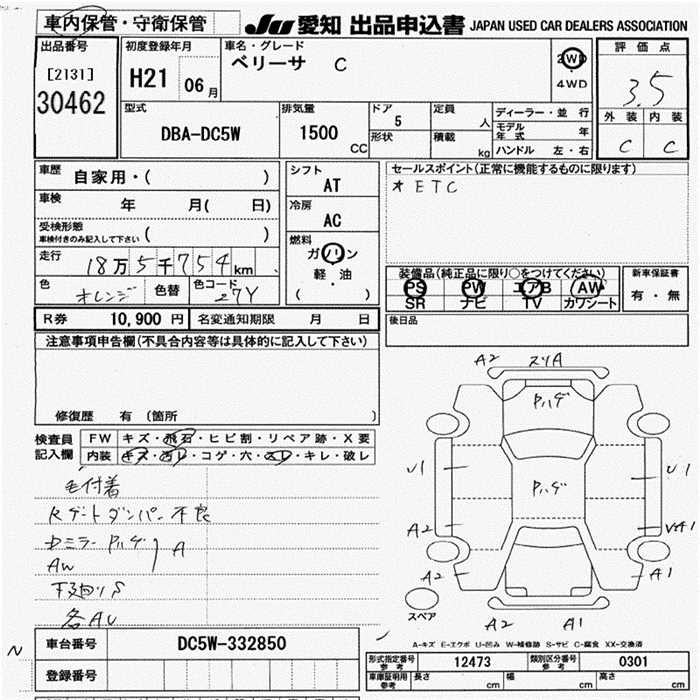 車内保管・守衛保管
JU 愛知 出品申込書 JAPAN USED CAR DEALERS ASSOCIATION
出品番号
[2131]
30462
初度登録年月
H21 06月
車名・グレード
ベリーサ C
2WD
4WD
評価点
3.5
外装 内装
C C
型式
DBA-DC5W
排気量
1500 CC
ドア
5
形状
定員
人
積載
kg
ディーラー・並行
モデル年式 年
ハンドル 左・右
車歴 自家用・( )
車検 年 月( 日)
受検形態
車検付きのみ記入して下さい ( )
走行 18万5千754km
色 オレンジ 色替 色コード 27Y
シフト
AT
冷房
AC
燃料
ガソリン
軽・油
( )
セールスポイント(正常に機能するものに限ります)
* ETC
装備品(純正品に限り○をつけてください)
PS PW エアB AW
SR ナビ TV カワシート
新車保証書
有・無
後日品
R券 10,900円 名変通知期限 月 日
注意事項申告欄(不具合内容等は具体的に記入して下さい)
修復歴 有 (箇所 )
検査員記入欄
FW キズ・飛石・ヒビ割・リペア跡・X要
内装 キズ・汚レ・コゲ・穴・スレ・キレ・破レ
毛付着
Rゲートダンパー不良
ドミラーPハゲ
AW
A
下廻りS
各AU
A2 スリA
Pハゲ
U1 U1
Pハゲ
A2 WA1
A2 A1
スペア
A2 A1
A-キズ E-エクボ U-凹み W-補修跡 S-サビ C-腐食 XX-交換済
N
車台番号 DC5W-332850
登録番号
形式指定番号 参考 12473 類別区分番号 参考 0301
車庫証明用 参考 長さ cm 幅 cm 高さ cm